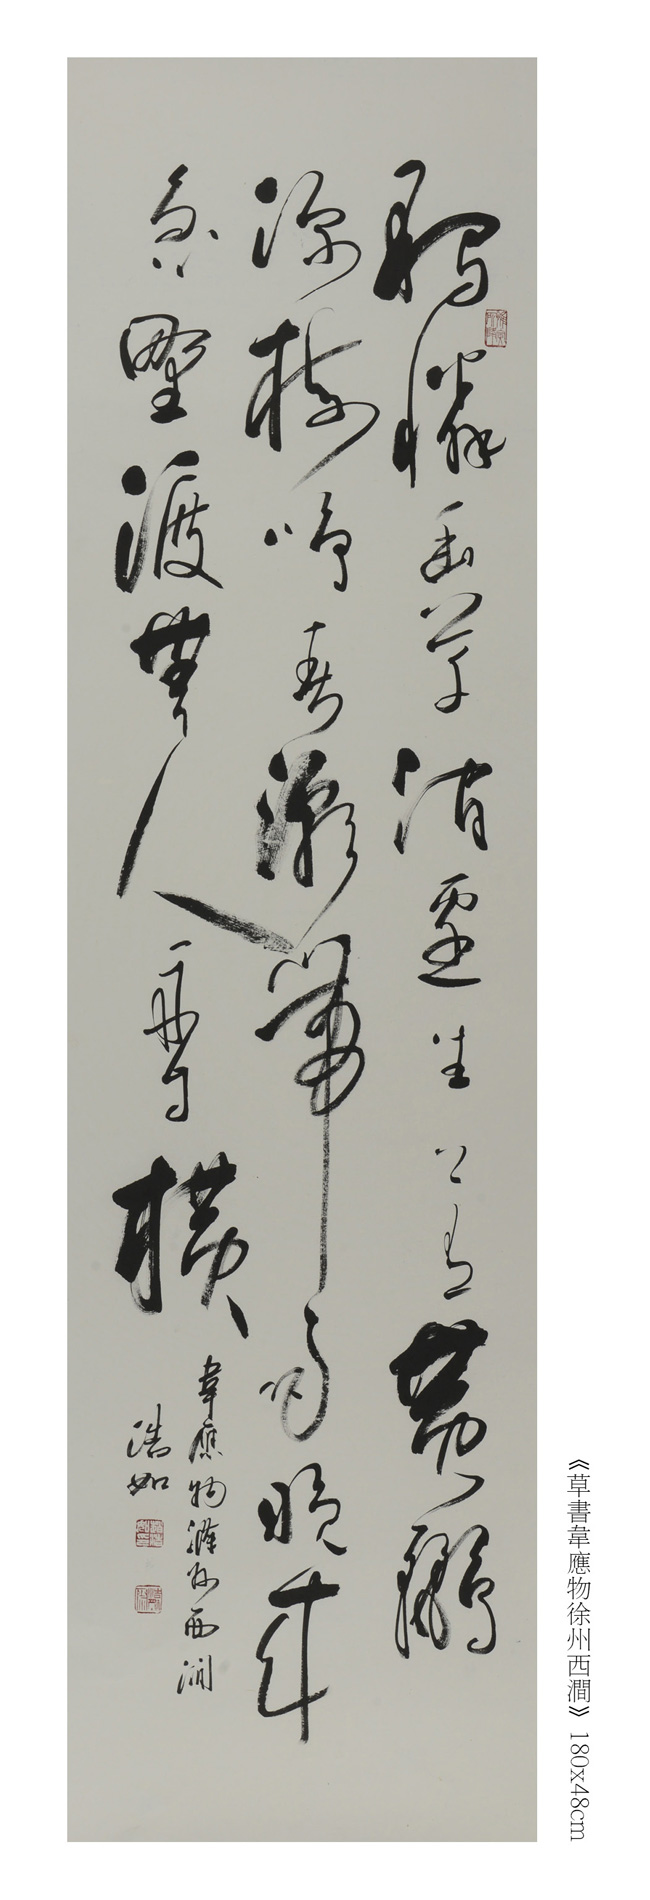 獨憐幽草澗邊生上有黃鸝
深樹鳴春潮帶雨晚來
急野渡無人舟自橫
韋應物滁州西澗
浩如
《草書韋應物徐州西澗》 180x48cm